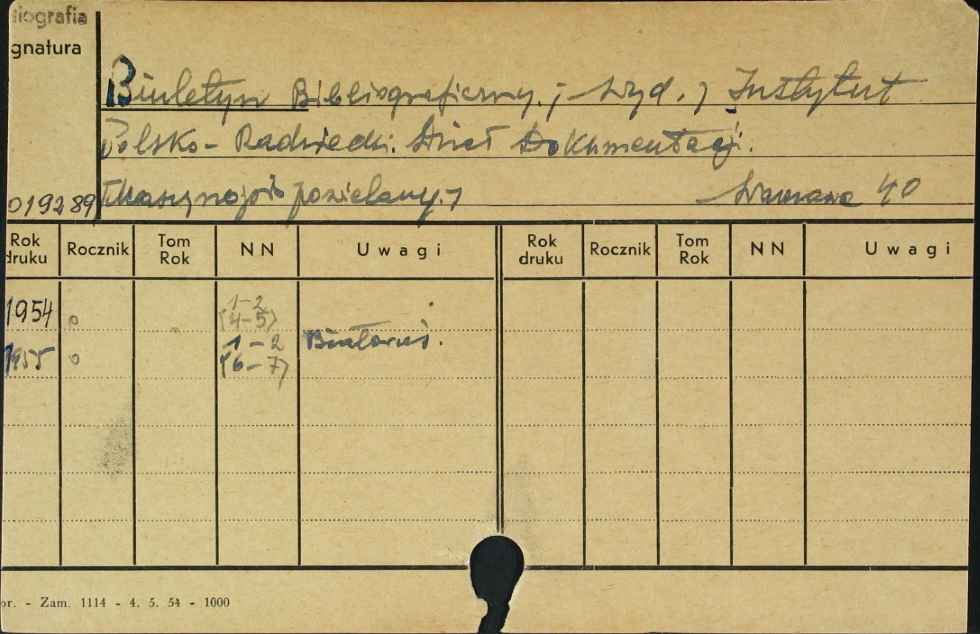 iografia
gnatura
Biuletyn Bibliograficzny. ; Wyd. ; Instytut
Polsko-Radziecki. Dział Dokumentacji.
019289 powielany. ; Warszawa 40
Rok druku Rocznik Tom Rok NN Uwagi Rok druku Rocznik Tom Rok NN Uwagi
1954 1-2
(4-5)
1955 1-2 Białoruś.
(6-7)
or. - Zam. 1114 - 4. 5. 54 - 1000